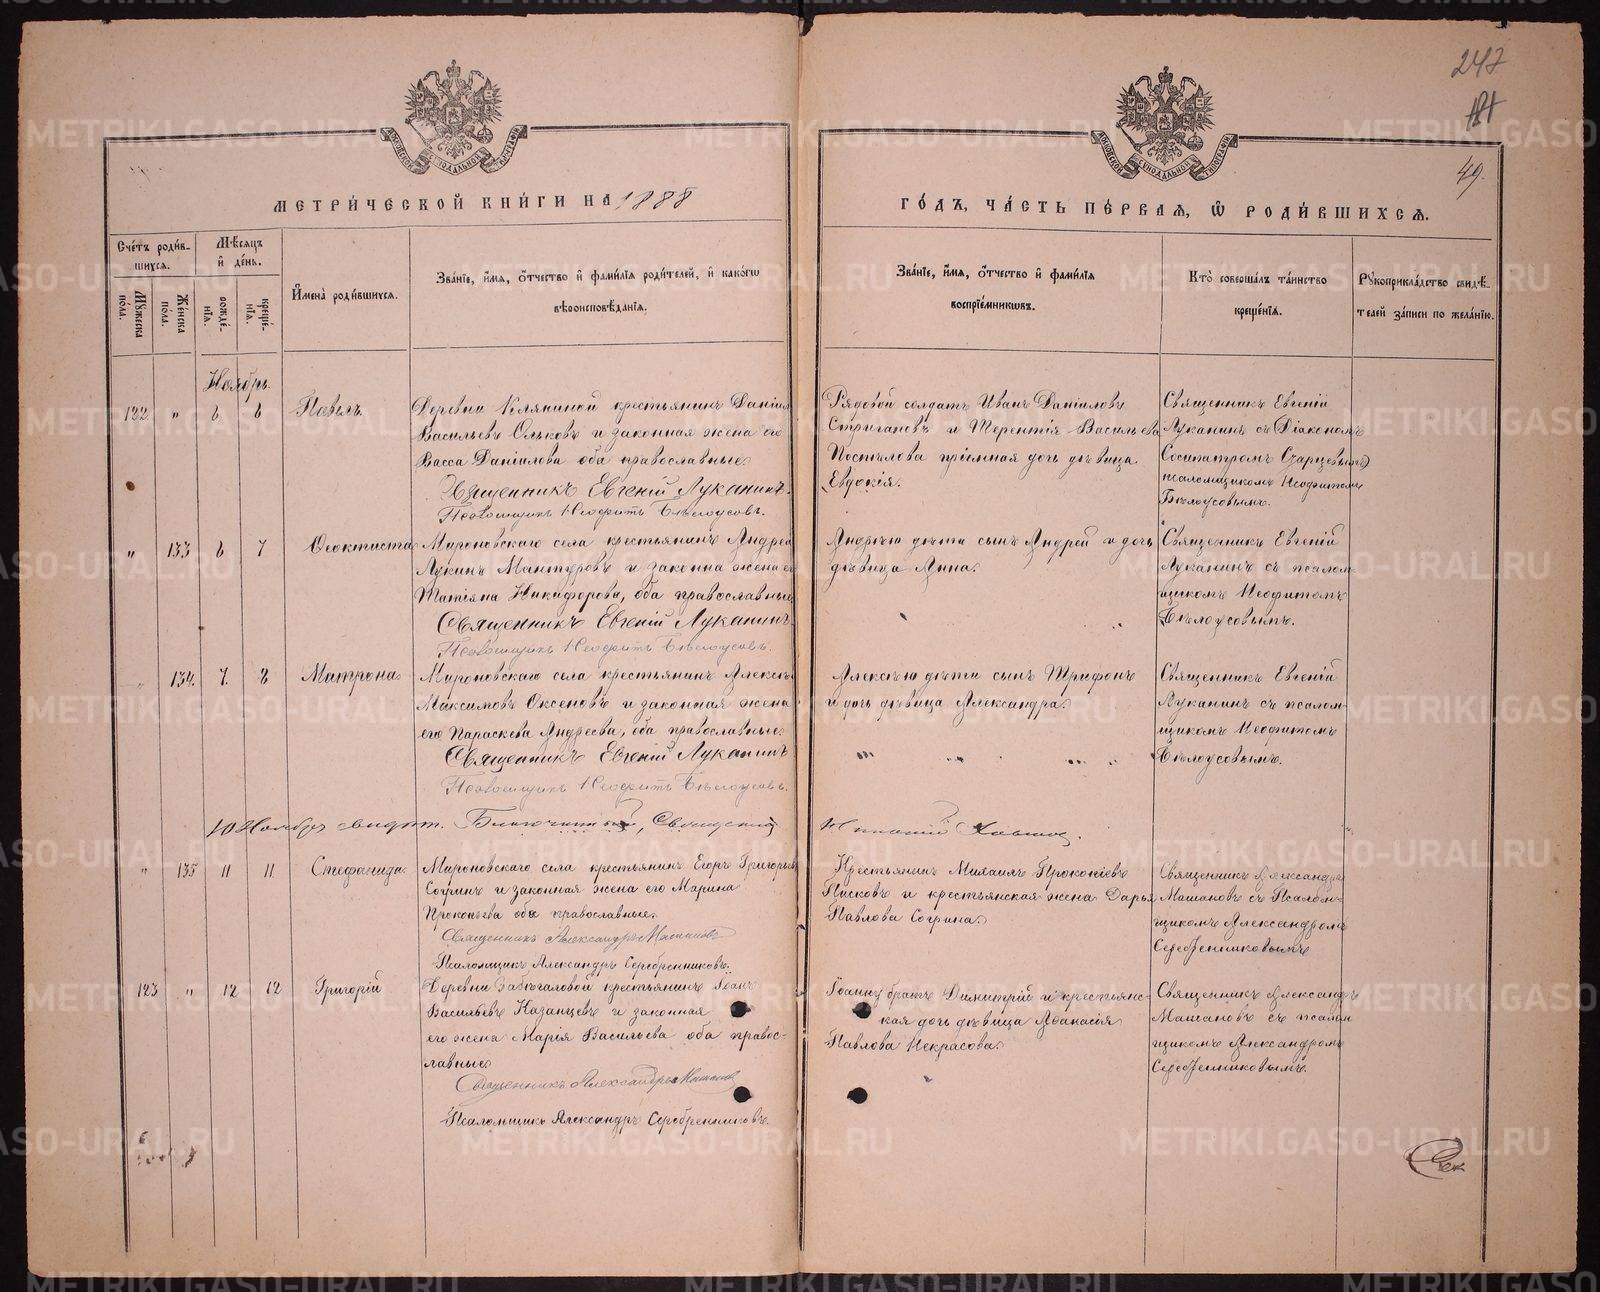 247
181
49.
МОСКОВСКОЙ СѴНОДАЛЬНОЙ ТИПОГРАФІИ
МОСКОВСКОЙ СѴНОДАЛЬНОЙ ТИПОГРАФІИ
МЕТРИ́ЧЕСКОЙ КНИ́ГИ НА 1888
ГО́ДЪ, ЧА́СТЬ ПЕ́РВАЯ, Ѡ РОДИ́ВШИХСЯ.
Сче́тъ роди́в-
шихся.
Мꙋ́жеска
по́ла.
Же́нска
по́ла.
Мѣ́сяцъ
и҆ де́нь.
рожде́-
нїя.
креще́-
нїя.
И҆мена̀ роди́вшихся.
Зва́нїе, и҆́мя, ѻ҆́тчество и҆ фами́лїя роди́телей, и҆ како́гѡ
вѣроисповѣ́данїя.
Зва́нїе, и҆́мя, ѻ҆́тчество и҆ фами́лїя
воспрїе́мникѡвъ.
Кто̀ соверша́лъ та́инство
креще́нїя.
Рꙋкоприкла́дство свидѣ́-
телей за́писи по жела́нїю.
Ноябрь.
132. " 6 6 Павелъ.
Деревни Кляпиной крестьянинъ Даніил
Васильевъ Ольковъ и законная жена его
Васса Даніилова оба православные.
Священникъ Евгеній Луканинъ.
Псаломщикъ Неофитъ Бѣлоусовъ.
Рядовой солдатъ Иванъ Даніиловъ
Стригановъ и Терентія Васильева
Постылова пріемная дочь дѣвица
Евдокія.
Священникъ Евгеній
Луканинъ съ Діакономъ
Сосипатромъ Старцевымъ
псаломщикомъ Неофитомъ
Бѣлоусовымъ.
" 133 6 7 Ѳеоктиста
Мироновскаго села крестьянинъ Андрей
Лукинъ Мантуровъ и законна жена его
Татіяна Никифорова, оба православные
Священникъ Евгеній Луканинъ.
Псаломщикъ Неофитъ Бѣлоусовъ.
Андрею дѣти сынъ Андрей и дочь
дѣвица Анна.
Священникъ Евгеній
Луканинъ съ псалом-
щикомъ Неофитомъ
Бѣлоусовымъ.
" 134. 7. 8 Матрона
Мироновскаго села крестьянинъ Алексѣй
Максимовъ Оксеновъ и законная жена
его Параскева Андреева, оба православные
Священникъ Евгеній Луканинъ
Псаломщикъ Неофитъ Бѣлоусовъ.
Алексѣю дѣти сынъ Трифонъ
и дочь дѣвица Александра.
Священникъ Евгеній
Луканинъ съ псалом-
щикомъ Неофитомъ
Бѣлоусовымъ.
10 Ноября свидѣт. Благочинный, Священникъ
" 135 11 11 Стефанида
Мироновскаго села крестьянинъ Егоръ Григорьевъ
Согринъ и законная жена его Марина
Прокопьева оба православные.
Священникъ Александръ Машановъ
Псаломщикъ Александръ Серебренниковъ.
Крестьянинъ Михаилъ Прокопіевъ
Писковъ и крестьянская жена Дарья
Павлова Согрина.
Священникъ Александръ
Машановъ съ Псалом-
щикомъ Александромъ
Серебренниковымъ
123 " 12 12 Григорій
Деревни Забѣгаловой крестьянинъ Іоаннъ
Васильевъ Казанцевъ и законная
его жена Марія Васильева оба правос-
лавные
Священникъ Александръ Машановъ
Псаломщикъ Александръ Серебренниковъ.
Іоанну братъ Димитрій и крестьянс-
кая дочь дѣвица Аѳанасія
Павлова Некрасова.
Священникъ Александръ
Машановъ съ псалом
щикомъ Александромъ
Серебренниковымъ.
METRIKI.GASO-URAL.RU